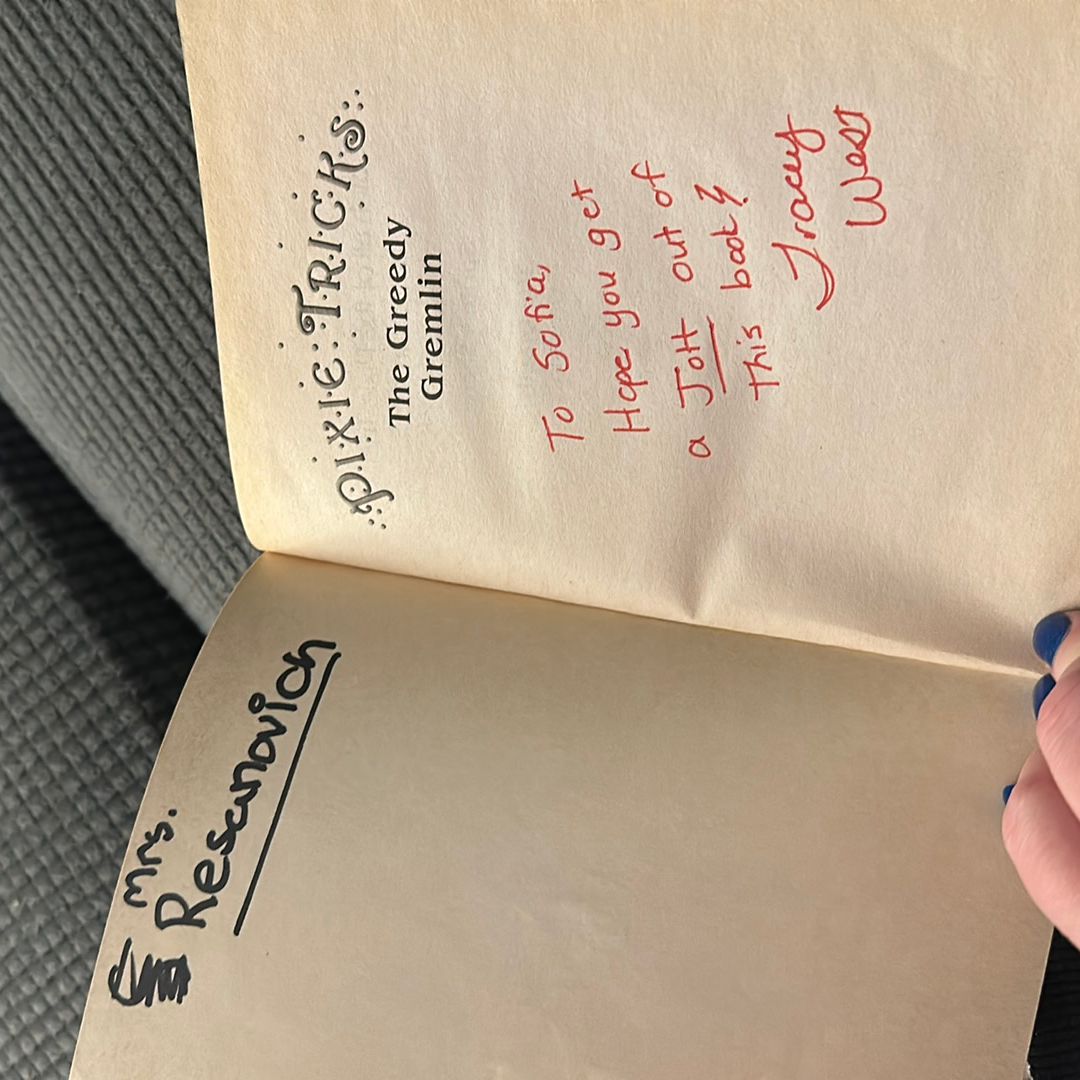 Mrs.
PIXIE TRICKS
The Greedy
Gremlin
To Sofia,
Hope you get
a Jolt out of
this book!
Tracey
West